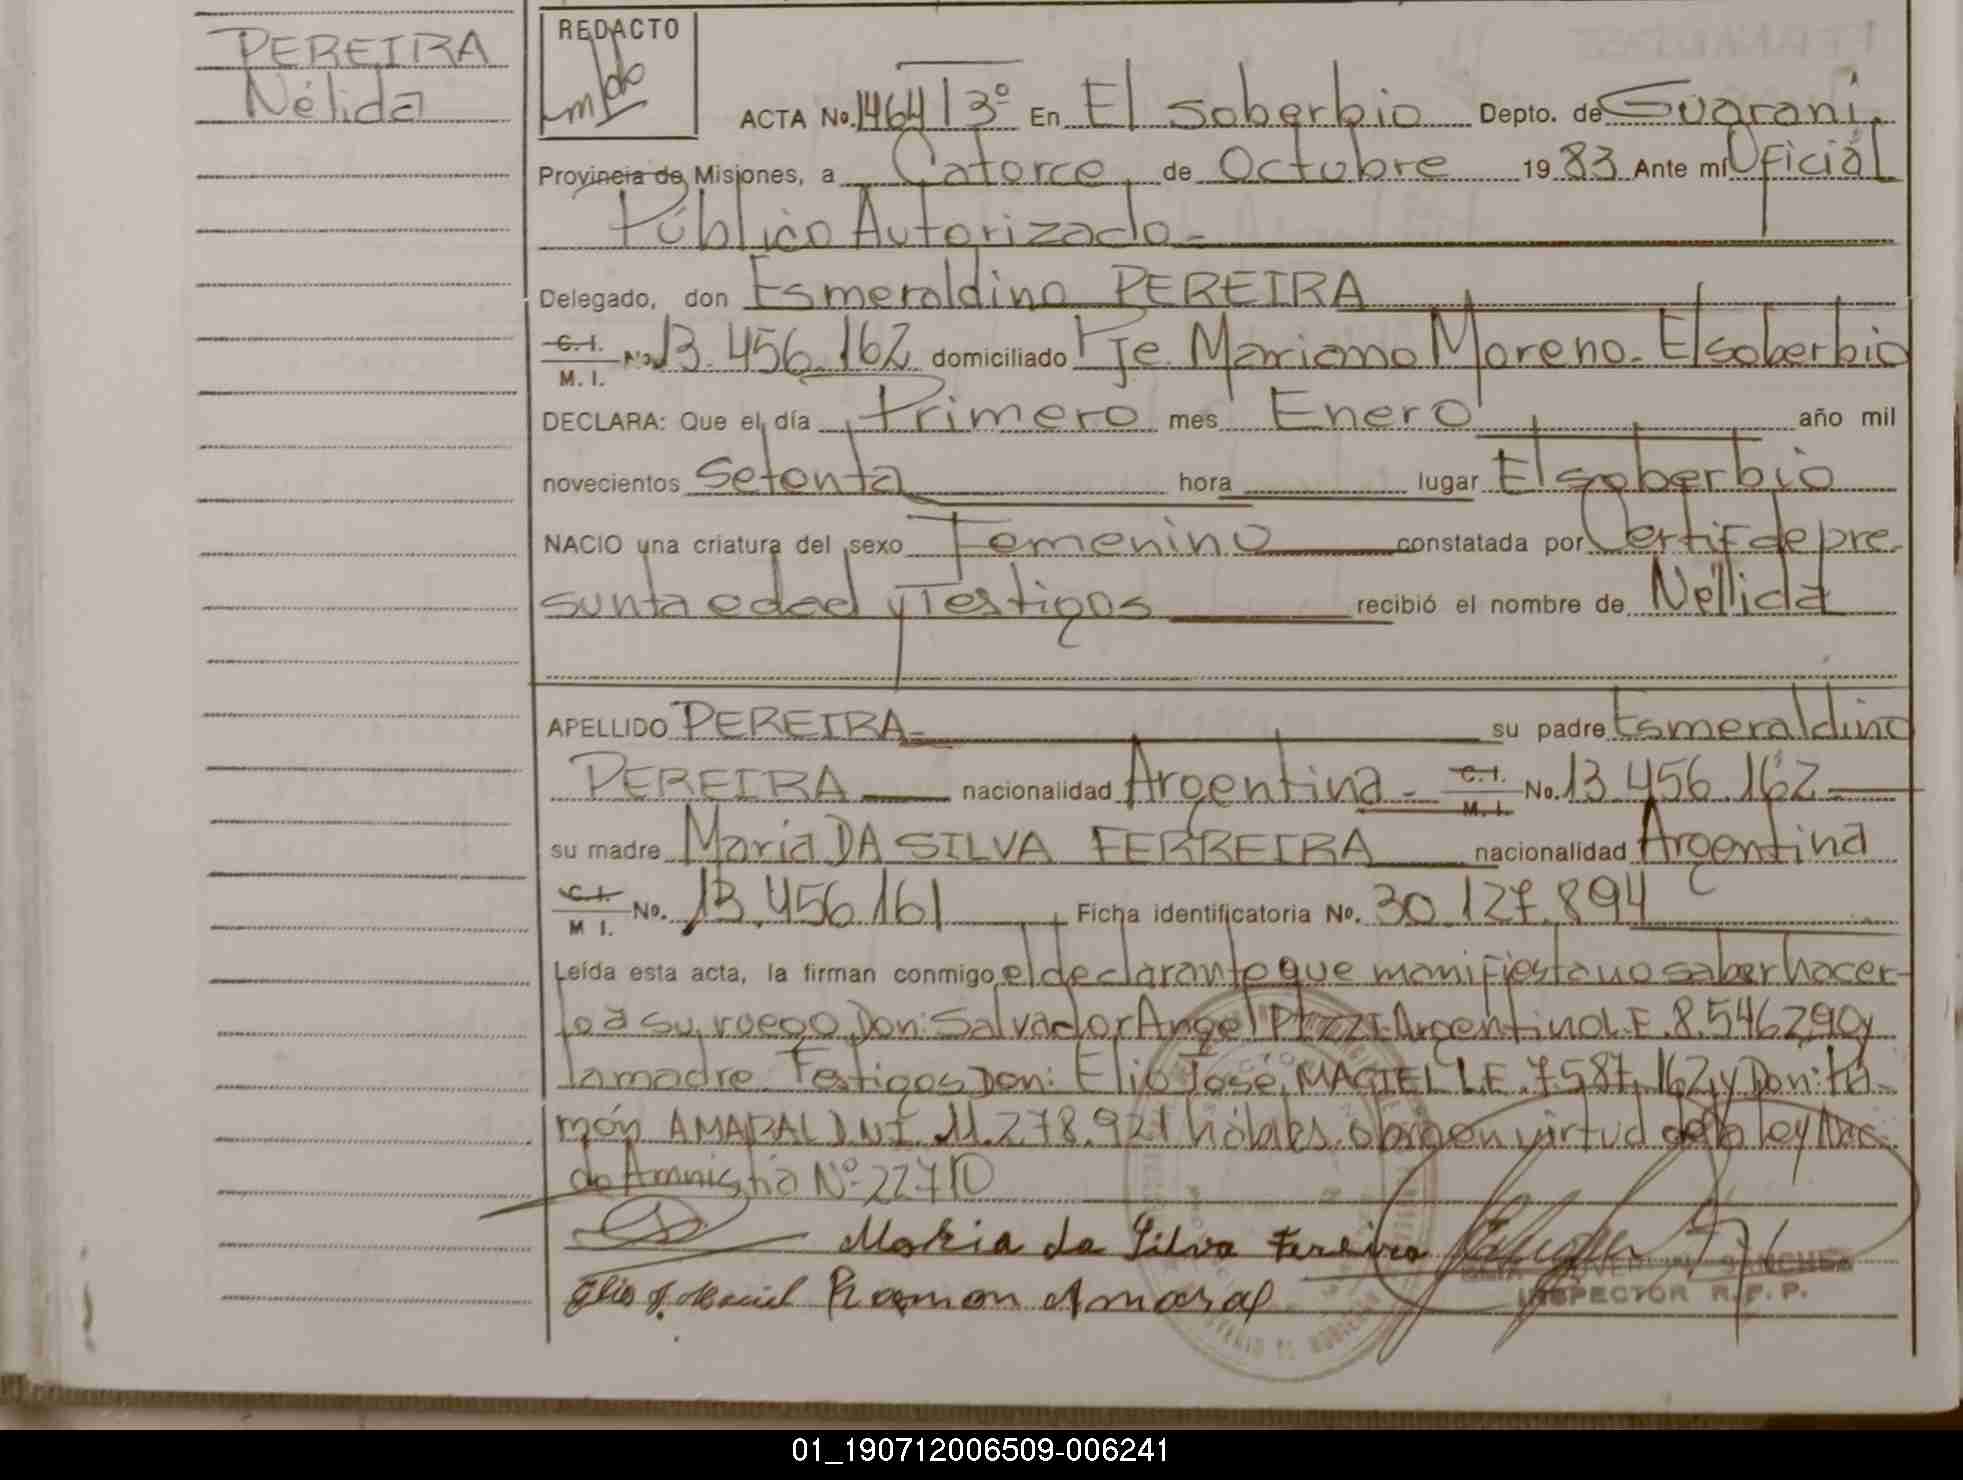 PEREIRA
Nélida
REDACTO
ACTA No. 1464 T 3º En El soberbio Depto. de Guarani,
Provincia de Misiones, a Catorce de Octubre 1983 Ante mí Oficial
Público Autorizado-
Delegado, don Esmeraldino PEREIRA
C. I. M. I. No. 13.456.162 domiciliado Pje Mariano Moreno. El soberbio
DECLARA: Que el día Primero mes Enero año mil
novecientos setenta hora lugar El soberbio
NACIO una criatura del sexo Femenino constatada por Certif de pre
sunta edad y Testigos recibió el nombre de Nélida
APELLIDO PEREIRA- su padre Esmeraldino
PEREIRA nacionalidad Argentina - C. I. M. I. No. 13.456.162
su madre Maria DA SILVA FERREIRA nacionalidad Argentina
C. I. M I. No. 13.456.161 Ficha identificatoria No. 30.127.894
Leída esta acta, la firman conmigo el declarante que manifiesta no saber hacer-
lo a su ruego Don: Salvador Angel PIZZI Argentino L.E. 8.546290 y
la madre Testigos Don: Elio José MACIEL L.E. 7.587.162 y Don: Ra
món AMARAL D.N.I. 11.278.921 hábiles. obra en virtud de la ley Nac.
de Amnistia Nº 22710
Maria da Silva Fereira
Elio J. Maciel Ramon Amaral
SANCHEZ
INSPECTOR R. P. P.
01_190712006509-006241